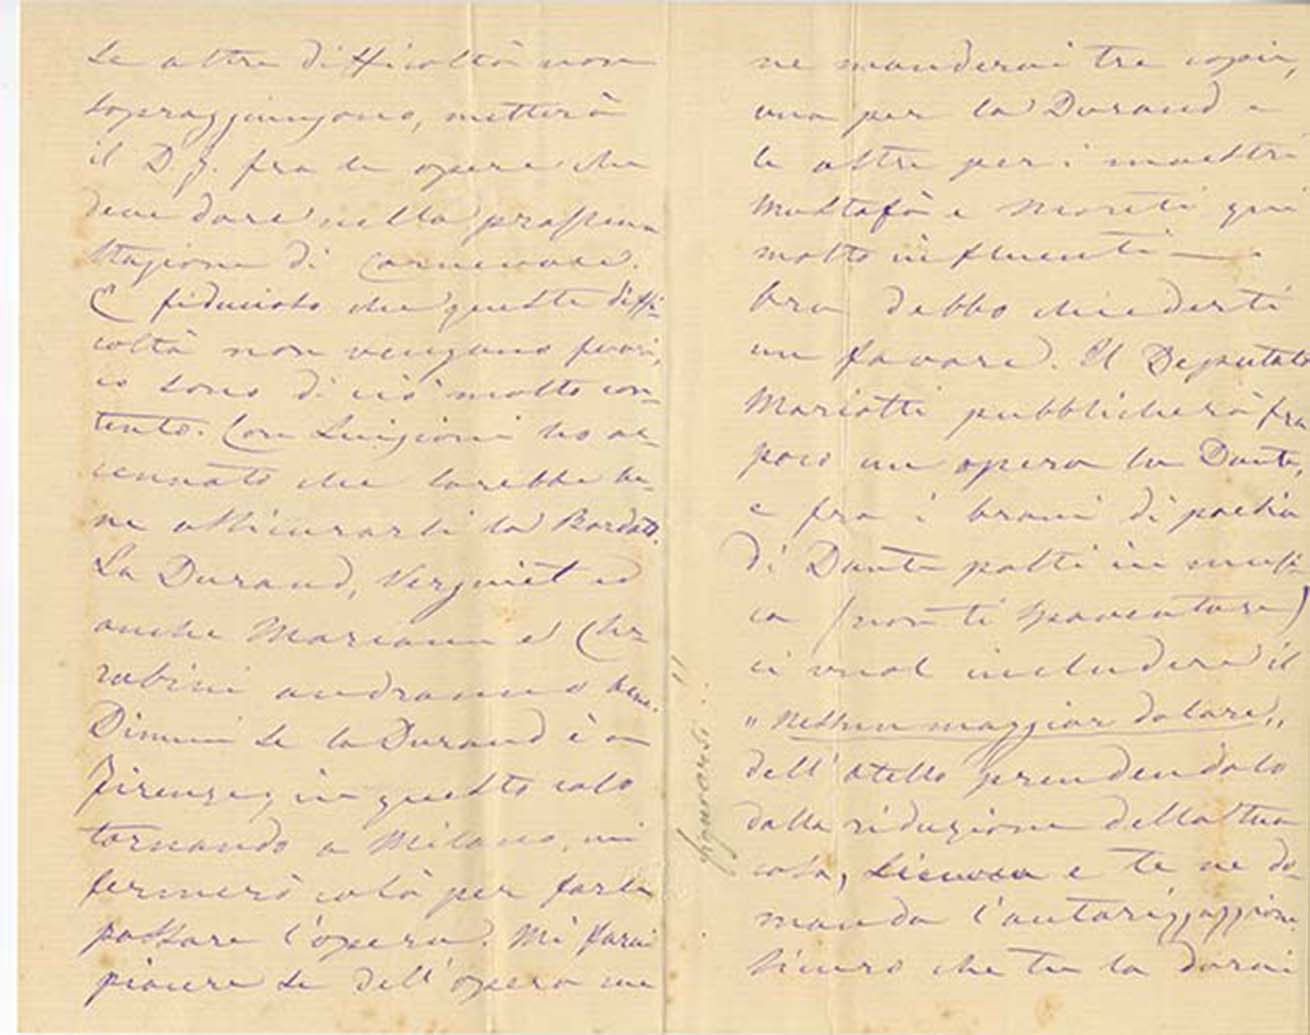 Se altre difficoltà non
sopraggiungono, metterà
il D. G. fra le opere che
deve dare nella prossima
stagione di Carnevale.
È fiducioso che queste diffi-
coltà non vengano fuori,
io sono di ciò molto con-
tento. Con Luigioni ho ac-
cennato che sarebbe be-
ne assicurarsi la Bordato.
La Durand, Vergnet ed
anche Mariani e Che-
rubini andranno bene.
Dimmi se la Durand è a
Firenze, in questo caso
tornando a Milano, mi
fermerò colà per farle
passare l'opera. Mi farai
piacere se dell'opera me
ne manderai tre copie,
una per la Durand e
le altre per i maestri
Mustafà e Moreti qui
molto influenti —
Ora debbo chiederti
un favore. Il Deputato
Mariotti pubblicherà fra
poco un opera su Dante,
e fra i brani di poesia
di Dante posti in musi-
ca (non ti spaventare)
ci vuol includere il
"Nessun maggior dolore"
dell'Otello prendendolo
dalla riduzione della tua
casa, e te ne do-
manda l'autorizzazzione
sicuro che tu la darai
figurarsi!!